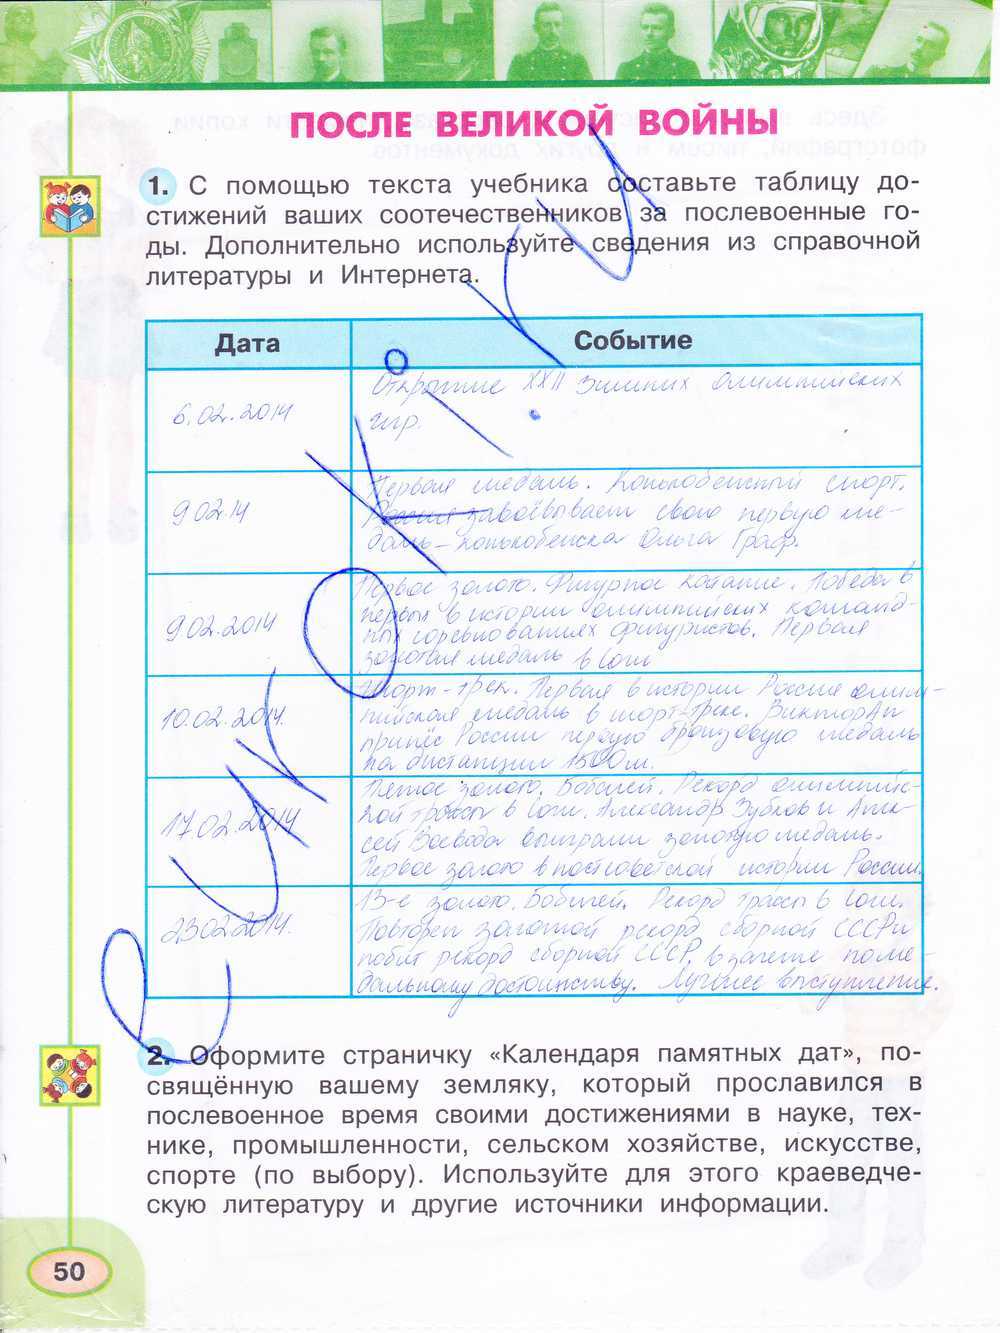 ПОСЛЕ ВЕЛИКОЙ ВОЙНЫ
1. С помощью текста учебника составьте таблицу до-
стижений ваших соотечественников за послевоенные го-
ды. Дополнительно используйте сведения из справочной
литературы и Интернета.
Дата
Событие
6.02.2014
Открытие XXII Зимних Олимпийских
игр.
9.02.14
Первая медаль. Конькобежный спорт.
Россия завоёвывает свою первую ме-
даль – конькобежска Ольга Граф.
9.02.2014
Первое золото. Фигурное катание. Победа в
первых в истории олимпийских команд-
ных соревнованиях фигуристов. Первая
золотая медаль в Сочи
10.02.2014.
Шорт-трек. Первая в истории России олим-
пийская медаль в шорт-треке. Виктор Ан
принёс России первую бронзовую медаль
на дистанции 1500 м.
17.02.2014
Пятое золото. Бобслей. Рекорд олимпийс-
кой трассы в Сочи. Александр Зубков и Алек-
сей Воевода выиграли золотую медаль.
Первое золото в постсоветской истории России.
23.02.2014.
13-е золото. Бобслей. Рекорд трассы в Сочи.
Повторен золотой рекорд сборной СССР и
побит рекорд сборной СССР, в зачете по ме-
дальному достоинству. Лучшее выступление.
2. Оформите страничку «Календаря памятных дат», по-
свящённую вашему земляку, который прославился в
послевоенное время своими достижениями в науке, тех-
нике, промышленности, сельском хозяйстве, искусстве,
спорте (по выбору). Используйте для этого краеведче-
скую литературу и другие источники информации.
50